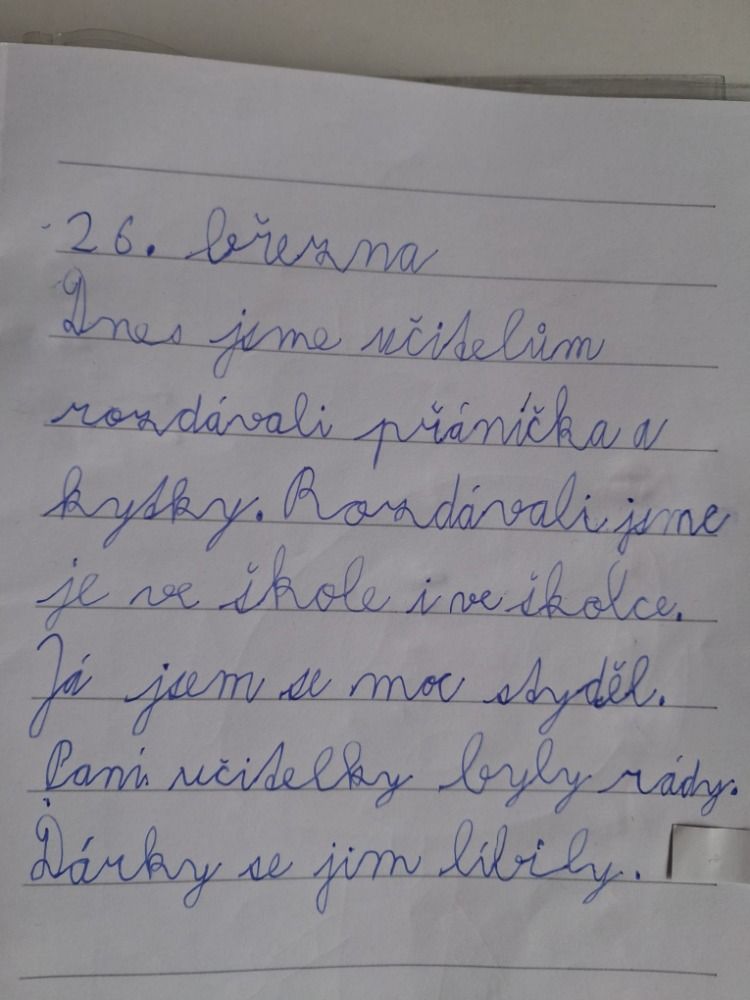 26. března
Dnes jsme učitelům
rozdávali přáníčka a
kytky. Rozdávali jsme
je ve škole i ve školce.
Já jsem se moc styděl.
Paní učitelky byly rády.
Dárky se jim líbily.